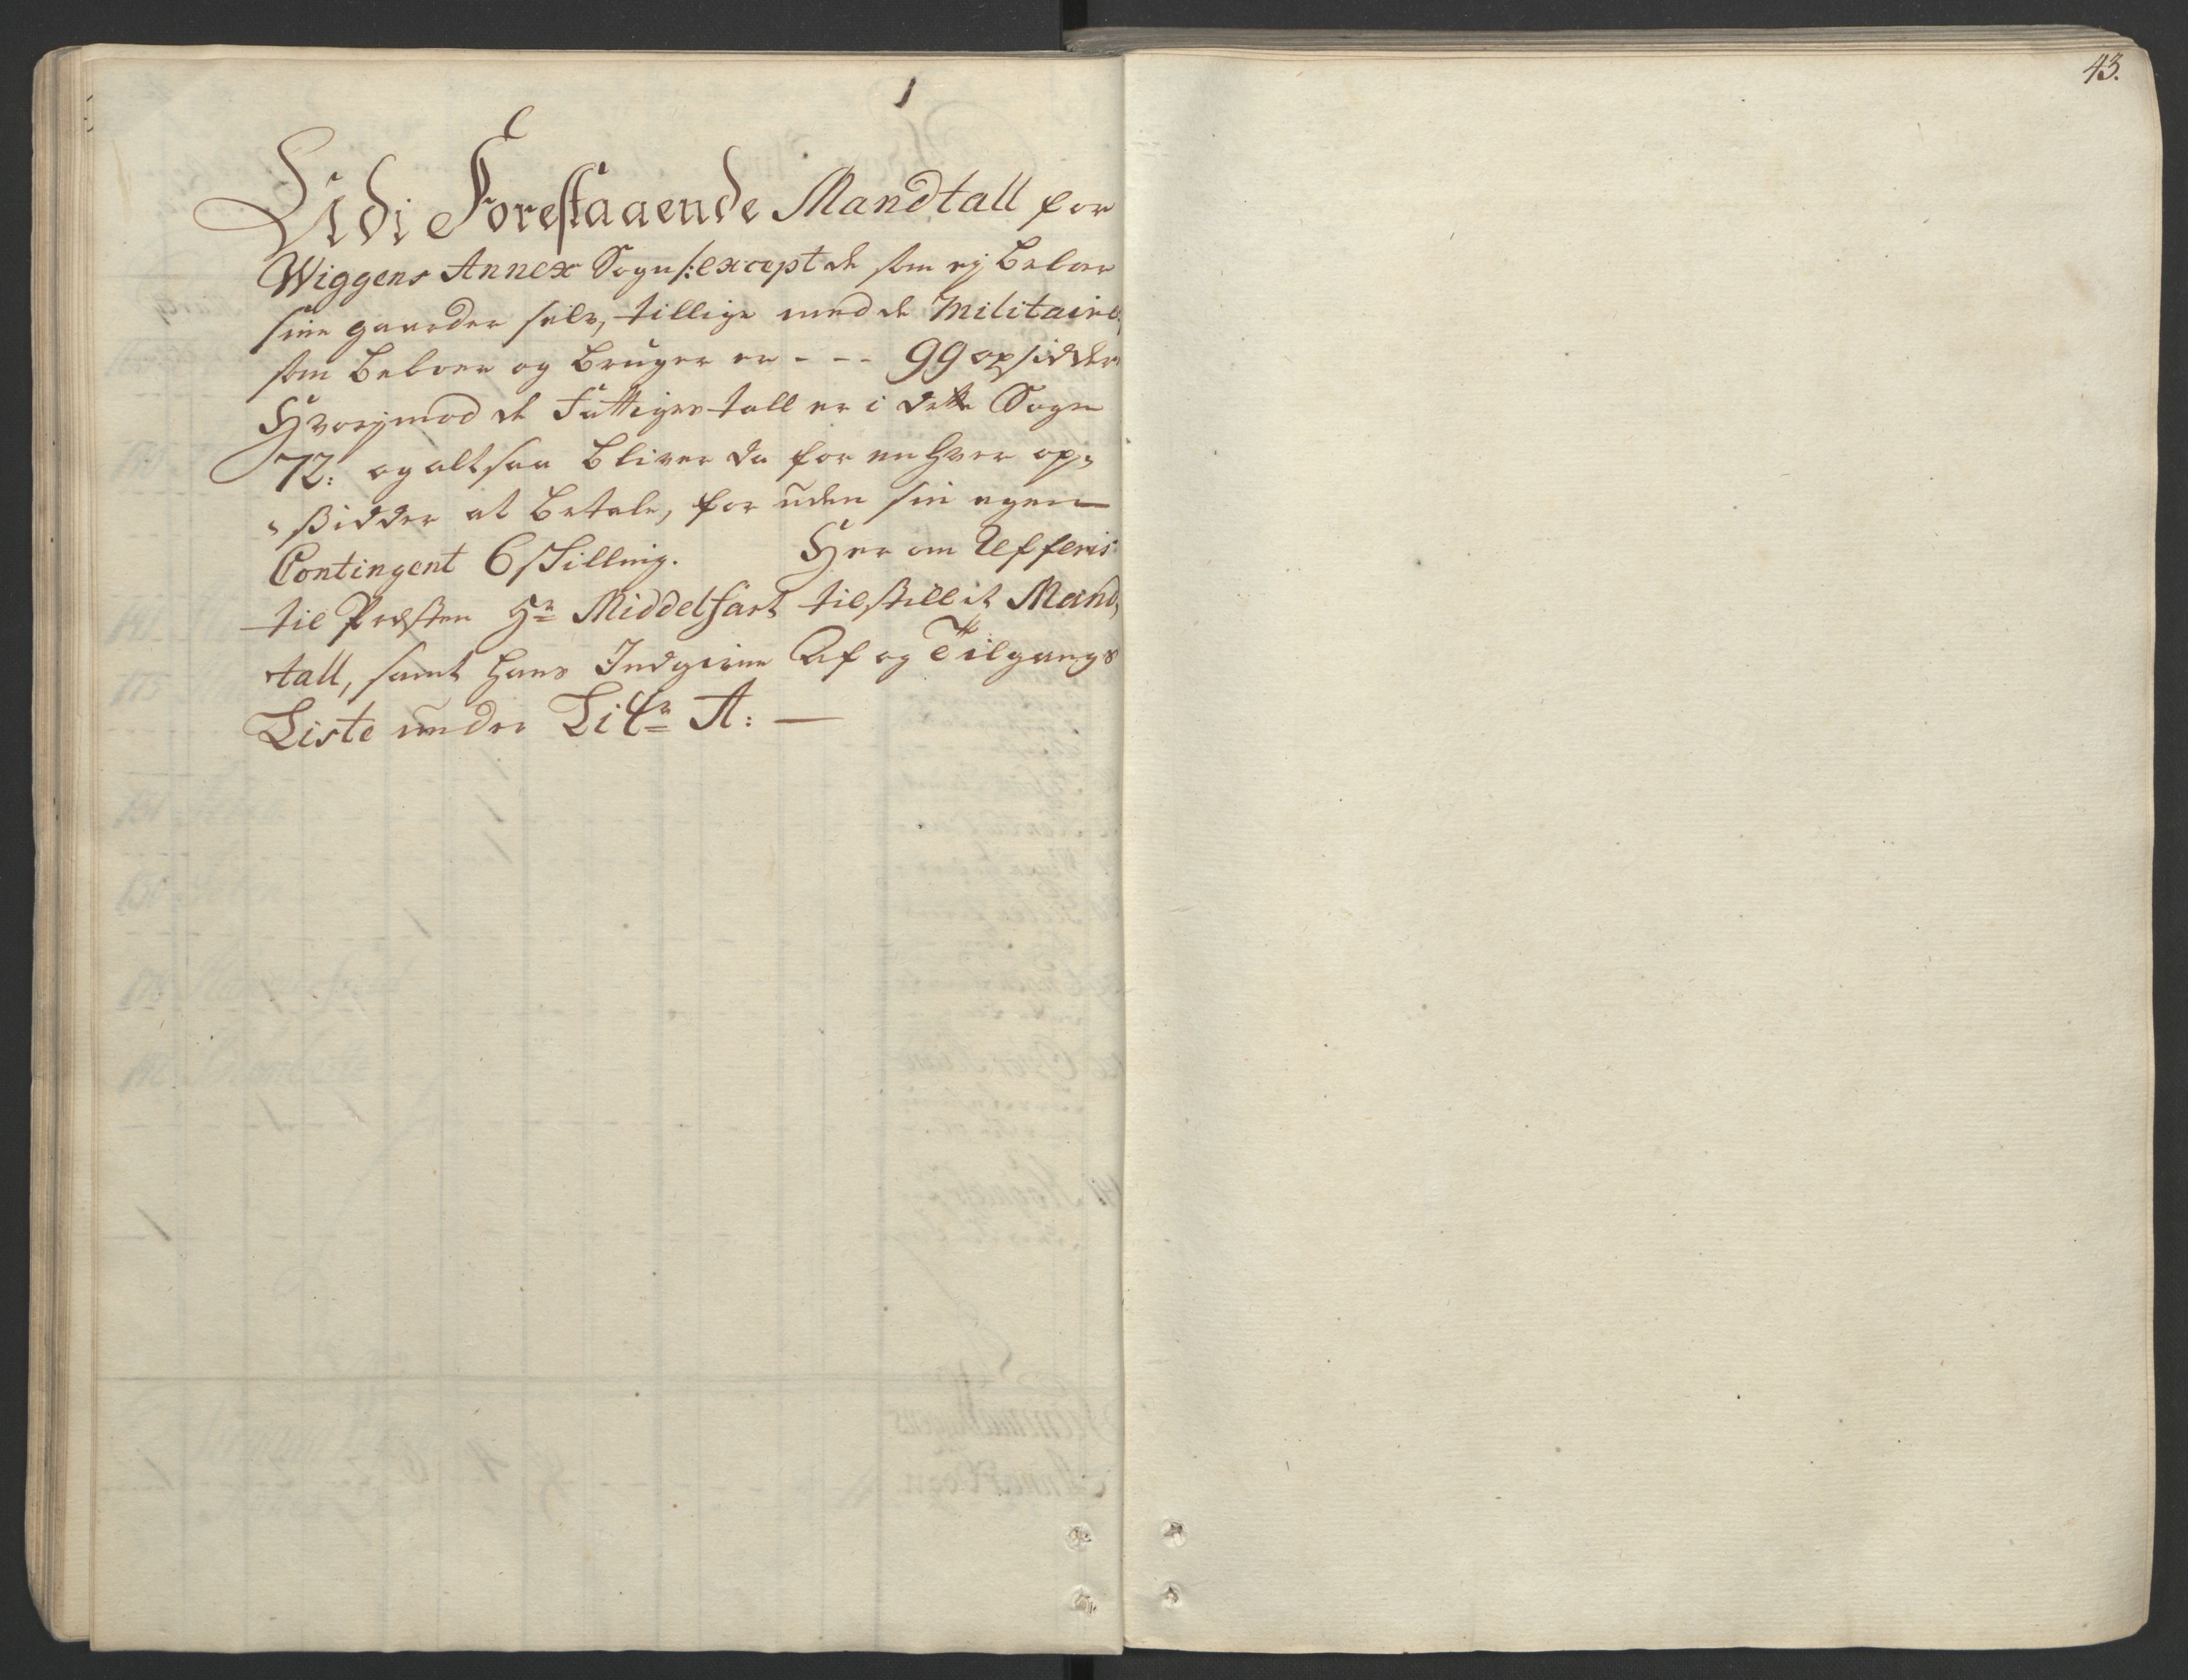 43.
Udi Forestaaende Mandtall for
Wiggens Annex Sogn /: except de som ej beboer
sine gaarder selv, tillige med de Militaire,
som beboer og bruger er - - - 99 opsidder
Hvorjmod de Fattiges tall er i dette Sogn
72: og altsaa bliver da for en hver op,
,sidder at betale, for uden sin egen
Contingent 6 skilling. Her om refferis
til Præsten Hr Middelfart tilstillet Mand,
tall, samt hans Indgivne Af og Tilgangs
Liste under Litr A: —